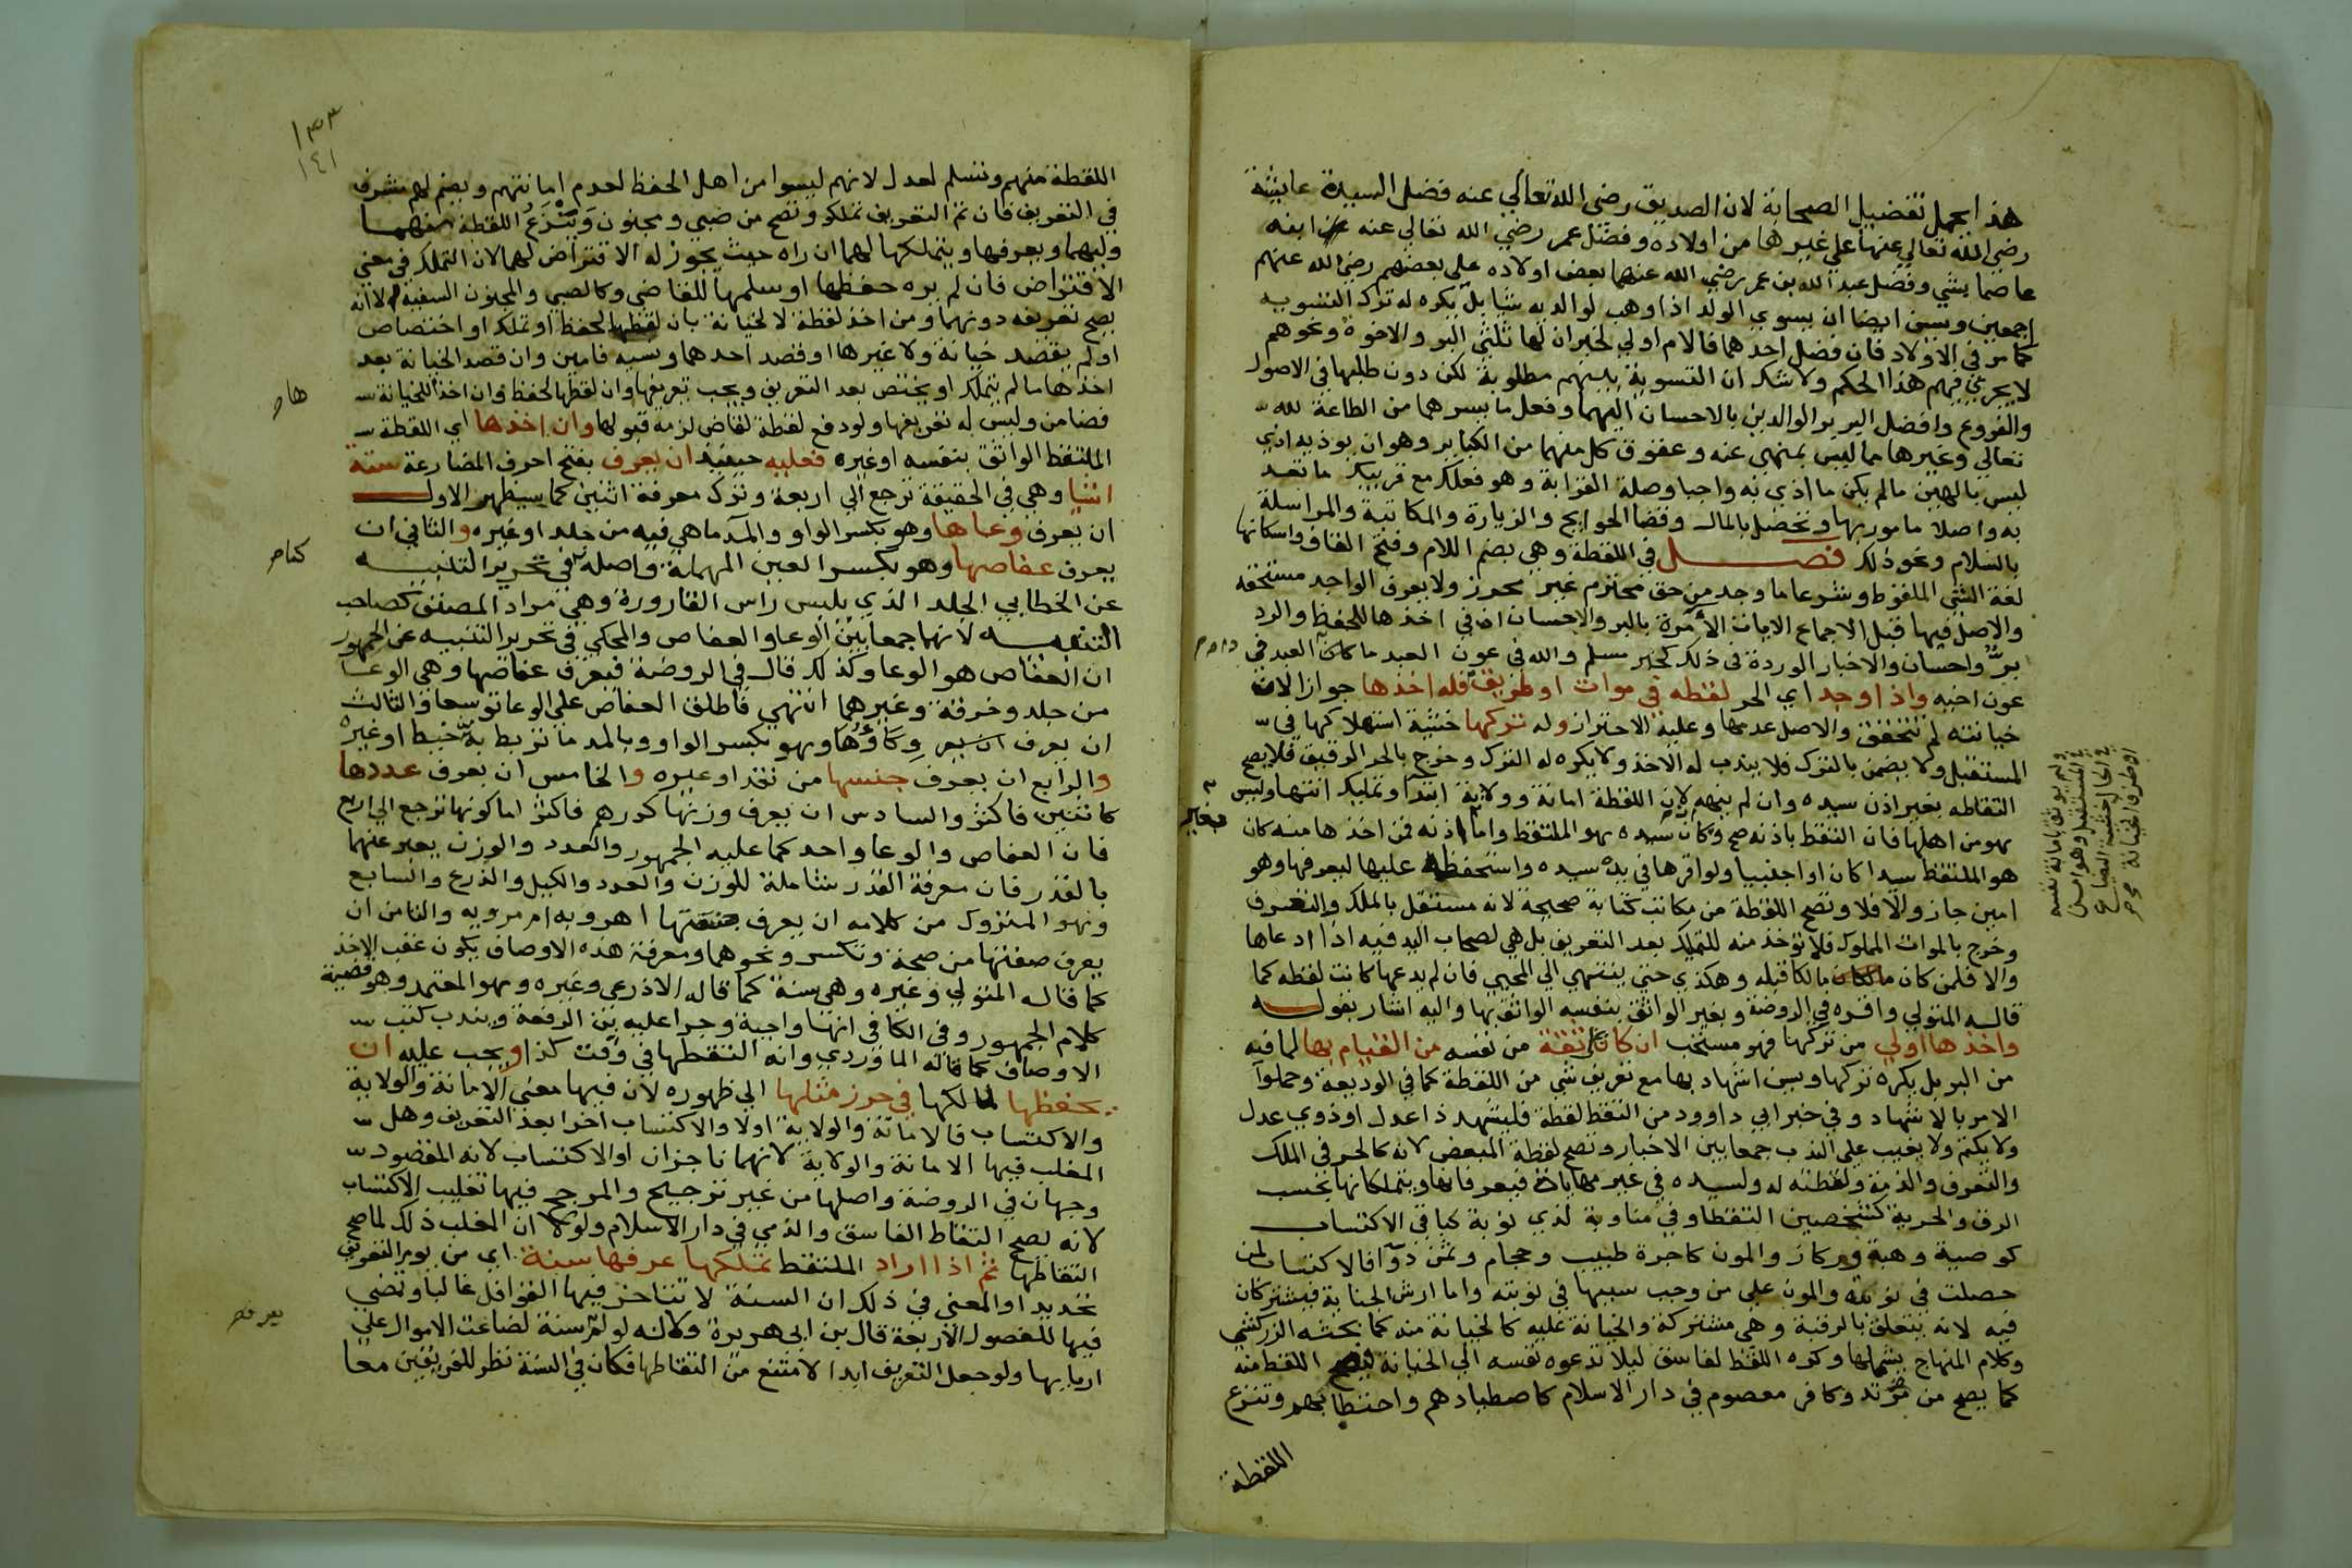 هذا يحمل تفضيل الصحابة لان الصديق رضى الله تعالي عنه فضل السيدة عايشة
رضي الله تعالي عنها علي غيرها من اولاده وفضل عمر رضي الله تعالي عنه ابنه
عاصما بشي وفضل عبد الله بن عمر رضي الله عنهما بعض اولاده علي بعضهم رضي الله عنهم
اجمعين ويسن ايضا ان يسوي الولد اذا وهب لوالديه شيا بل يكره له ترك التسوية
كما مر في الاولاد فان فضل احدهما فالام اولي لخبر ان لها ثلثي البر والاخوة ونحوهم
لا يجري فيهم هذا الحكم ولا شك ان التسوية بينهم مطلوبة لكن دون طلبها في الاصول
والفروع وافضل البر بر الوالدين بالاحسان اليهما وفعل ما يسرهما من الطاعة لله
تعالي وغيرها مما ليس بمنهى عنه وعقوق كل منهما من الكباير وهو ان يوذيه اذي
ليس بالهين ما لم يكن ما اذي به واجبا وصلة القرابة وهو فعلك مع قريبك ما تعد
به واصلا مامور بها وتحصل بالمال وقضا الحوايج والزيارة والمكاتبة والمراسلة
بالسلام ونحو ذلك فصل في اللقطة وهي بضم اللام وفتح القاف واسكانها
لغة الشي الملقوط وشرعا ما وجد من حق محترم غير محرز ولا يعرف الواجد مستحقه
والاصل فيها قبل الاجماع الايات الامرة بالبر والاحسان اذ في اخذها للحفظ والرد
بر واحسان والاخبار الوردة في ذلك كخبر مسلم والله في عون العبد ما كان العبد في
دام
عون اخيه واذا وجد اي الحر لقطة في موات او طريق فله اخذها جوازا لان
خيانته لم تتحقق والاصل عدمها وعليه الاحتراز وله تركها خشية استهلاكها في
المستقبل ولا يضمن بالترك فلا يندب له الاخذ ولا يكره له الترك وخرج بالحر الرقيق فلا يصح
التقاطه بغير اذن سيده وان لم ينهه لان اللقطة امانة وولاية ابتدا وتمليك انتها وليس
هو من اهلها فان التقط باذنه صح وكان سيده هو الملتقط واما اذنه فمن اخذها منه كان
بغير
هو الملتقط سيدا كان او اجنبيا ولو اقرها في يده سيده واستحفظه عليها ليعرفها وهو
امين جاز والا فلا وتصح اللقطة من مكاتب كتابة صحيحة لانه مستقل بالملك والتصرف
وخرج بالموات المملوك فلا توخذ منه للتملك بعد التعريف بل هي لصاحب اليد فيه اذا ادعاها
والا فلمن كان مالكا قبله وهكذي حتي ينتهي الي المحيي فان لم يدعها كانت لقطه كما
قاله المتولي واقره في الروضة وبغير الواثق بنفسه الواثق بها واليه اشار بقوله
واخذها اولي من تركها فهو مستحب ان كان علي ثقة من نفسه من القيام بها لما فيه
من البر بل يكره تركها ويسن اشهاد بها مع تعريف شي من اللقطة كما في الوديعة وحملوا
الامر بالاشهاد وفي خبر ابي داوود من التقط لقطة فليشهد ذا عدل او ذوي عدل
ولا يكتم ولا يغيب علي الندب جمعا بين الاخبار وتصح لقطة المبعض لانه كالحر في الملك
والتصرف والذمة ولقطته له ولسيده في غير مهاياة فيعرفانها ويتملكانها بحسب
الرق والحرية كشخصين التقطا وفي مناوبة لذي نوبة كباقي الاكتساب
كوصية وهبة وركاز والمون كاجرة طبيب وحجام وثمن دوا فالاكتساب لمن
حصلت في نوبته والمون علي من وجب سببها في نوبته واما ارش الجناية فيشتركان
فيه لانه يتعلق بالرقبة وهي مشتركة والجناية عليه كالجناية منه كما بحثه الزركشي
وكلام المنهاج يشملها وكره اللقط لفاسق ليلا تدعوه نفسه الي الخيانة فيصح اللقط منه
كما يصح من مرتد وكافر معصوم في دار الاسلام كاصطيادهم واحتطابهم وتنزع
اللقطة
ولم يوثق بامانة نفسه
في المستقبل وهو امين
في الحال خشية الضياع
او طرو الخيانة
١٣٣
١٤١
اللقطة منهم وتسلم لعدل لانهم ليسوا من اهل الحفظ لعدم امانتهم ويضم لهم مشرف
في التعريف فان تم التعريف تملكو وتصح من صبي ومجنون وتنزع اللقطة منهما
وليهما ويعرفها ويتملكها لهما ان راه حيث يجوز له الاقتراض لهما لان التملك في معني
الاقتراض فان لم يره حفظها او سلمها للقاضي وكالصبي والمجنون السفيه الا انه
يصح تعريفه دونهما ومن اخذ لقطة لا لخيانة بان لقطها لحفظ او تملك او اختصاص
او لم يقصد خيانة ولا غيرها او قصد احدهما ونسيه فامين وان قصد الخيانة بعد
اخذها ما لم يتملك او يختص بعد التعريف ويجب تعريفها وان لقطها لحفظ وان اخذ للخيانة
ها
فضامن وليس له تعريفها ولو دفع لقطة لقاض لزمه قبولها وان اخذها اي اللقطة
الملتقط الواثق بنفسه او غيره فعليه حينيذ ان يعرف بفتح احرف المضارعة ستة
اشيا وهي في الحقيقة ترجع الي اربعة وترك معرفة اثنين كما سيظهر الاول
ان يعرف وعاها وهو بكسر الواو والمد ما هي فيه من جلد او غيره والثاني ان
يعرف عفاصها وهو بكسر العين المهملة واصله في تحرير التنبيه
عن الخطابي الجلد الذي يلبس راس القارورة وهي مراد المصنف كصاحب
التنبيه لانهما جمعا بين الوعا والعفاص والمحكي في تحرير التنبيه عن الجمهور
ان العفاص هو الوعا وكذلك قال في الروضة فيعرف عفاصها وهي الوعا
من جلد وخرقة وغيرهما انتهي فاطلق العفاص علي الوعا توسعا والثالث
ان يعرف وكاؤها وهو بكسر الواو وبالمد ما تربط به خيط او غيره
والرابع ان يعرف جنسها من نقد او غيره والخامس ان يعرف عددها
كاثنين فاكثر والسادس ان يعرف وزنها كدرهم فاكثر اما كونها ترجع الي اربع
فان العفاص والوعا واحد كما عليه الجمهور والعدد والوزن يعبر عنهما
بالقدر فان معرفة القدر شاملة للوزن والعدد والكيل والذرع والسابع
وهو المتروك من كلامه ان يعرف صنفتها اهروية ام مروية والثامن ان
يعرف صفتها من صحة وتكسر ونحوهما ومعرفة هذه الاوصاف يكون عقب الاخذ
كما قاله المتولي وغيره وهي سنة كما قاله الاذرعي وغيره وهو المعتمد وهو قضية
كلام الجمهور وفي الكافي انها واجبة وجرا عليه بن الرفعة ويندب كتب
الاوصاف كما قاله الماوردي وانه التقطها في وقت كذا ويجب عليه ان
يحفظها لمالكها في حرز مثلها الي ظهوره لان فيها معني الامانة والولاية
والاكتساب فالامانة والولاية اولا والاكتساب اخرا بعد التعريف وهل
المغلب فيها الامانة والولاية لانهما ناجزان او الاكتساب لانه المقصود
وجهان في الروضة واصلها من غير ترجيح والمرجح فيها تغليب الاكتساب
لانه يصح التقاط الفاسق والذمي في دار الاسلام ولولا ان المغلب ذلك لما صح
التقاطها ثم اذا اراد الملتقط تملكها عرفها سنة اي من يوم التعريف
تحديدا والمعني في ذلك ان السنة لا تتاخر فيها القوافل غالبا وتمضي
فيها الفصول الاربعة قال بن ابي هريرة ولانه لو لم سنة لضاعت الاموال علي
اربابها ولو جعل التعريف ابدا لامتنع من التقاطها فكان في السنة نظر للفريقين معا